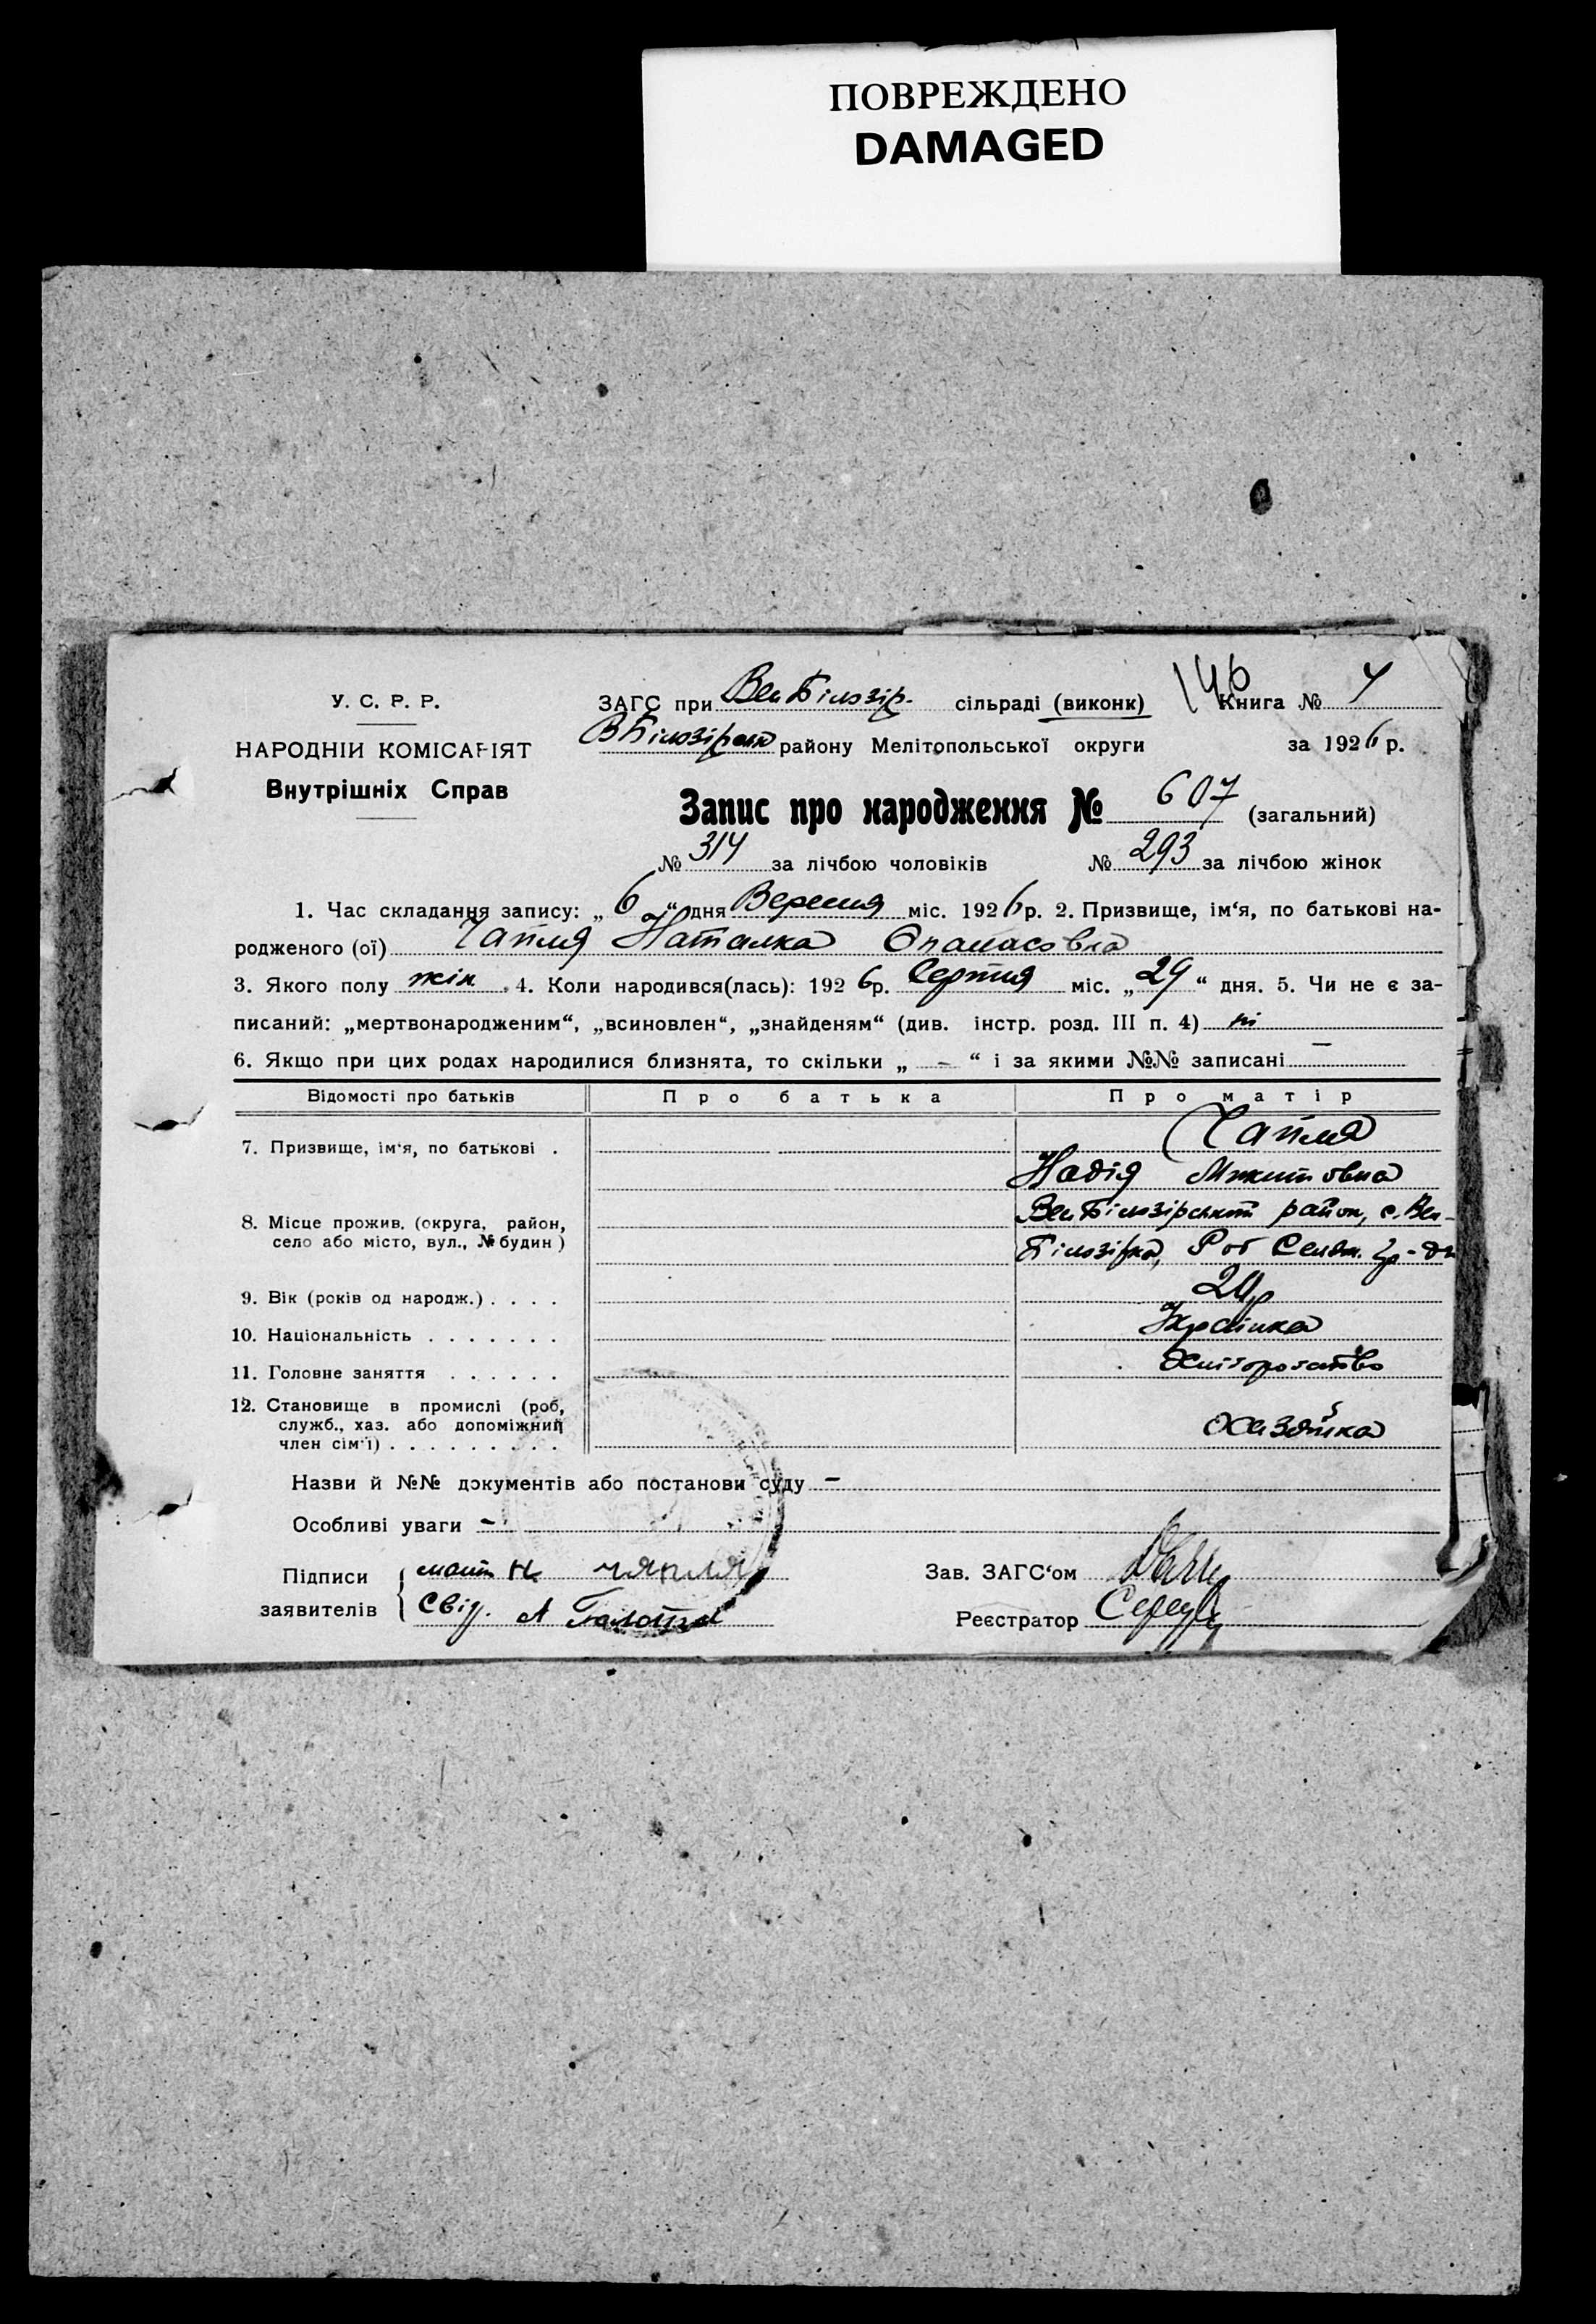 ПОВРЕЖДЕНО
DAMAGED
У. С. Р. Р.
НАРОДНІЙ КОМІСАРІЯТ
Внутрішніх Справ
ЗАГС при Вел Білозір. сільраді (виконк) 146 Книга № 7
В Білозірськ району Мелітопольської округи за 1926 р.
Запис про народження № 607 (загальний)
№ 314 за лічбою чоловіків № 293 за лічбою жінок
1. Час складання запису: „ 6 “ дня Вересня міс. 1926 р. 2. Призвище, ім‘я, по батькові на-
родженого (ої) Чапля Наталка Опанасовна
3. Якого полу жін. 4. Коли народився(лась): 1926 р. Серпня міс. „ 29 “ дня. 5. Чи не є за-
писаний: „мертвонародженим“, „всиновлен“, „знайденям“ (див. інстр. розд. III п. 4) ні
6. Якщо при цих родах народилися близнята, то скільки „ – “ і за якими №№ записані –
Відомості про батьків Про батька Про матір
7. Призвище, ім‘я, по батькові . Чапля
Надія Микитовна
8. Місце прожив. (округа, район, Вел Білозірський район, с. Вел-
село або місто, вул., № будин) Білозірка,
9. Вік (років од народж.) . . . . 24 р
10. Національність . . . . . . . Українка
11. Головне заняття . . . . . . Хліборобство
12. Становище в промислі (роб,
служб., хаз. або допоміжний Хазяйка
член сім‘ї) . . . . . . . . .
Назви й №№ документів або постанови суду –
Особливі уваги –
Підписи мати Н чяпля Зав. ЗАГС‘ом
заявителів Свід. А Реєстратор